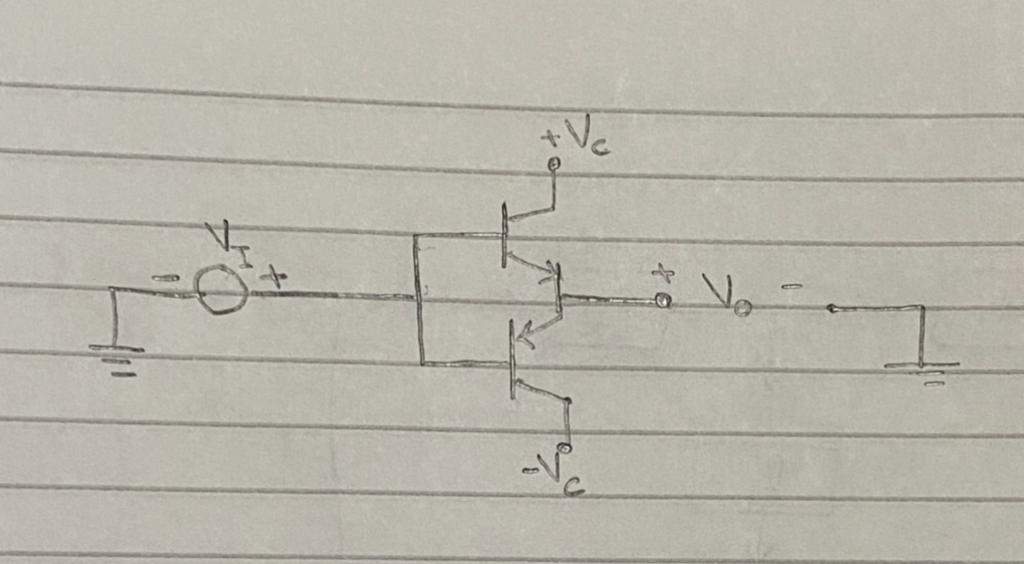 +VC
VI
- +
+ Vo -
-VC